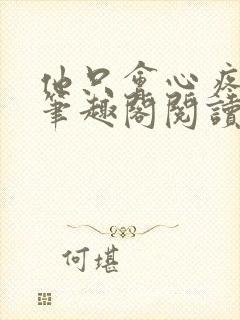 他只會心疼
筆趣閣閱讀
何堪